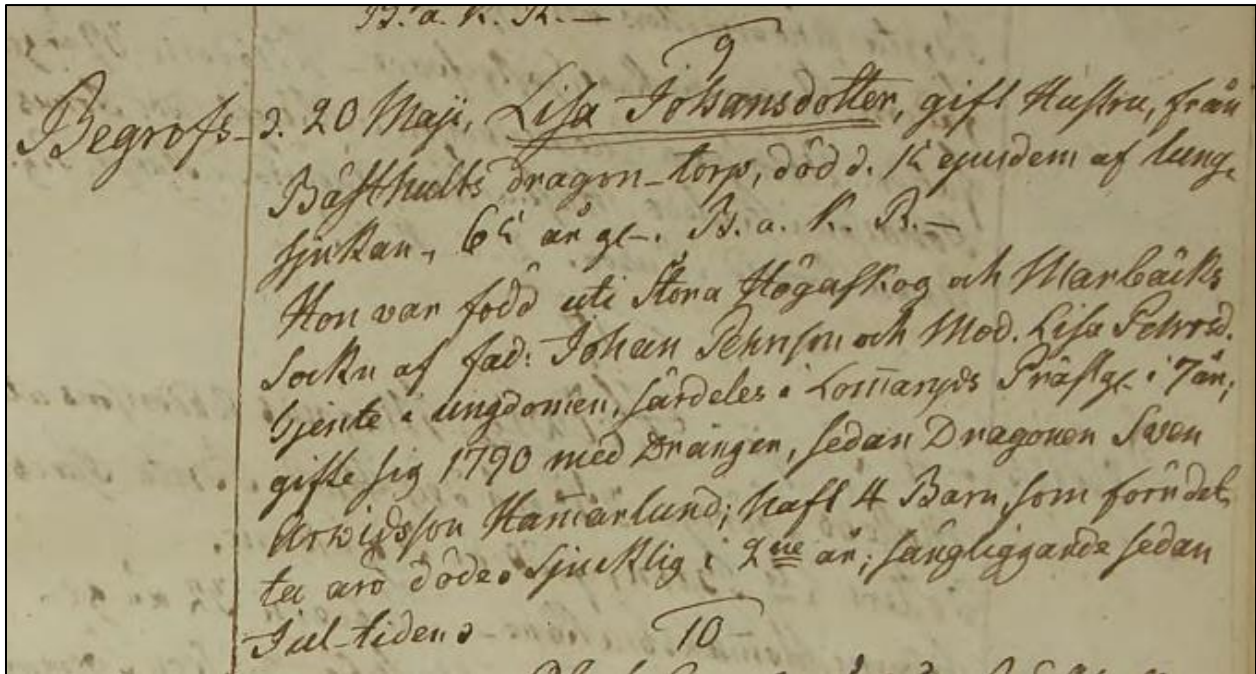 B. a. K. R. —
9
Begrofs d. 20 Maji, Lisa Johansdotter, gift Hustru, från
Båsthults dragon-torp, död d. 15 ejusdem af lung-
sjukan, 65 år gl. B. a. K. R. —
Hon var född uti Stora Högaskog och Marbäcks
Sockn af fad: Johan Pehrsson och Mod. Lisa Pehrsd.
tjente i ungdomen, särdeles i Lommaryds Prästg. i 7 år,
gifte sig 1790 med Drängen, sedan Dragonen Sven
Arwidsson Hammarlund; haft 4 Barn, som för det-
ta äro döde. Sjucklig i 2ne år; sängliggande sedan
Jul-tiden.
10